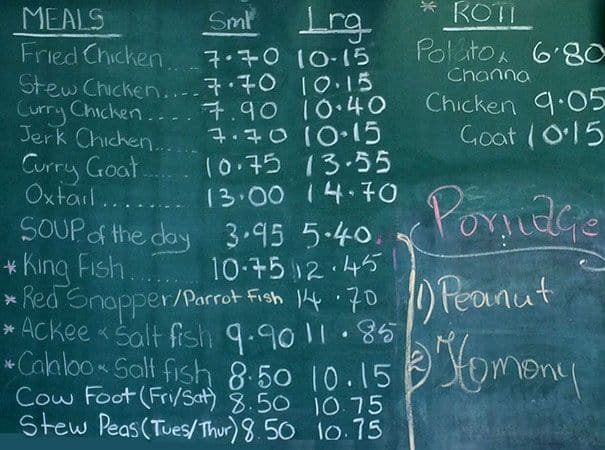 MEALS Sml Lrg
Fried Chicken.... 7.70 10.15
Stew Chicken.... 7.70 10.15
Curry Chicken..... 7.90 10.40
Jerk Chicken... 7.70 10.15
Curry Goat..... 10.75 13.55
Oxtail....... 13.00 14.70
SOUP of the day 3.95 5.40
* King Fish...... 10.75 12.45
* Red Snapper/Parrot Fish 14.70
* Ackee & Salt fish 9.90 11.85
* Calaloo & Salt fish 8.50 10.15
Cow Foot (Fri/Sat) 8.50 10.75
Stew Peas (Tues/Thur) 8.50 10.75
* ROTI
Potato & 6.80
Channa
Chicken 9.05
Goat 10.15
Porridge
1) Peanut
2) Homony